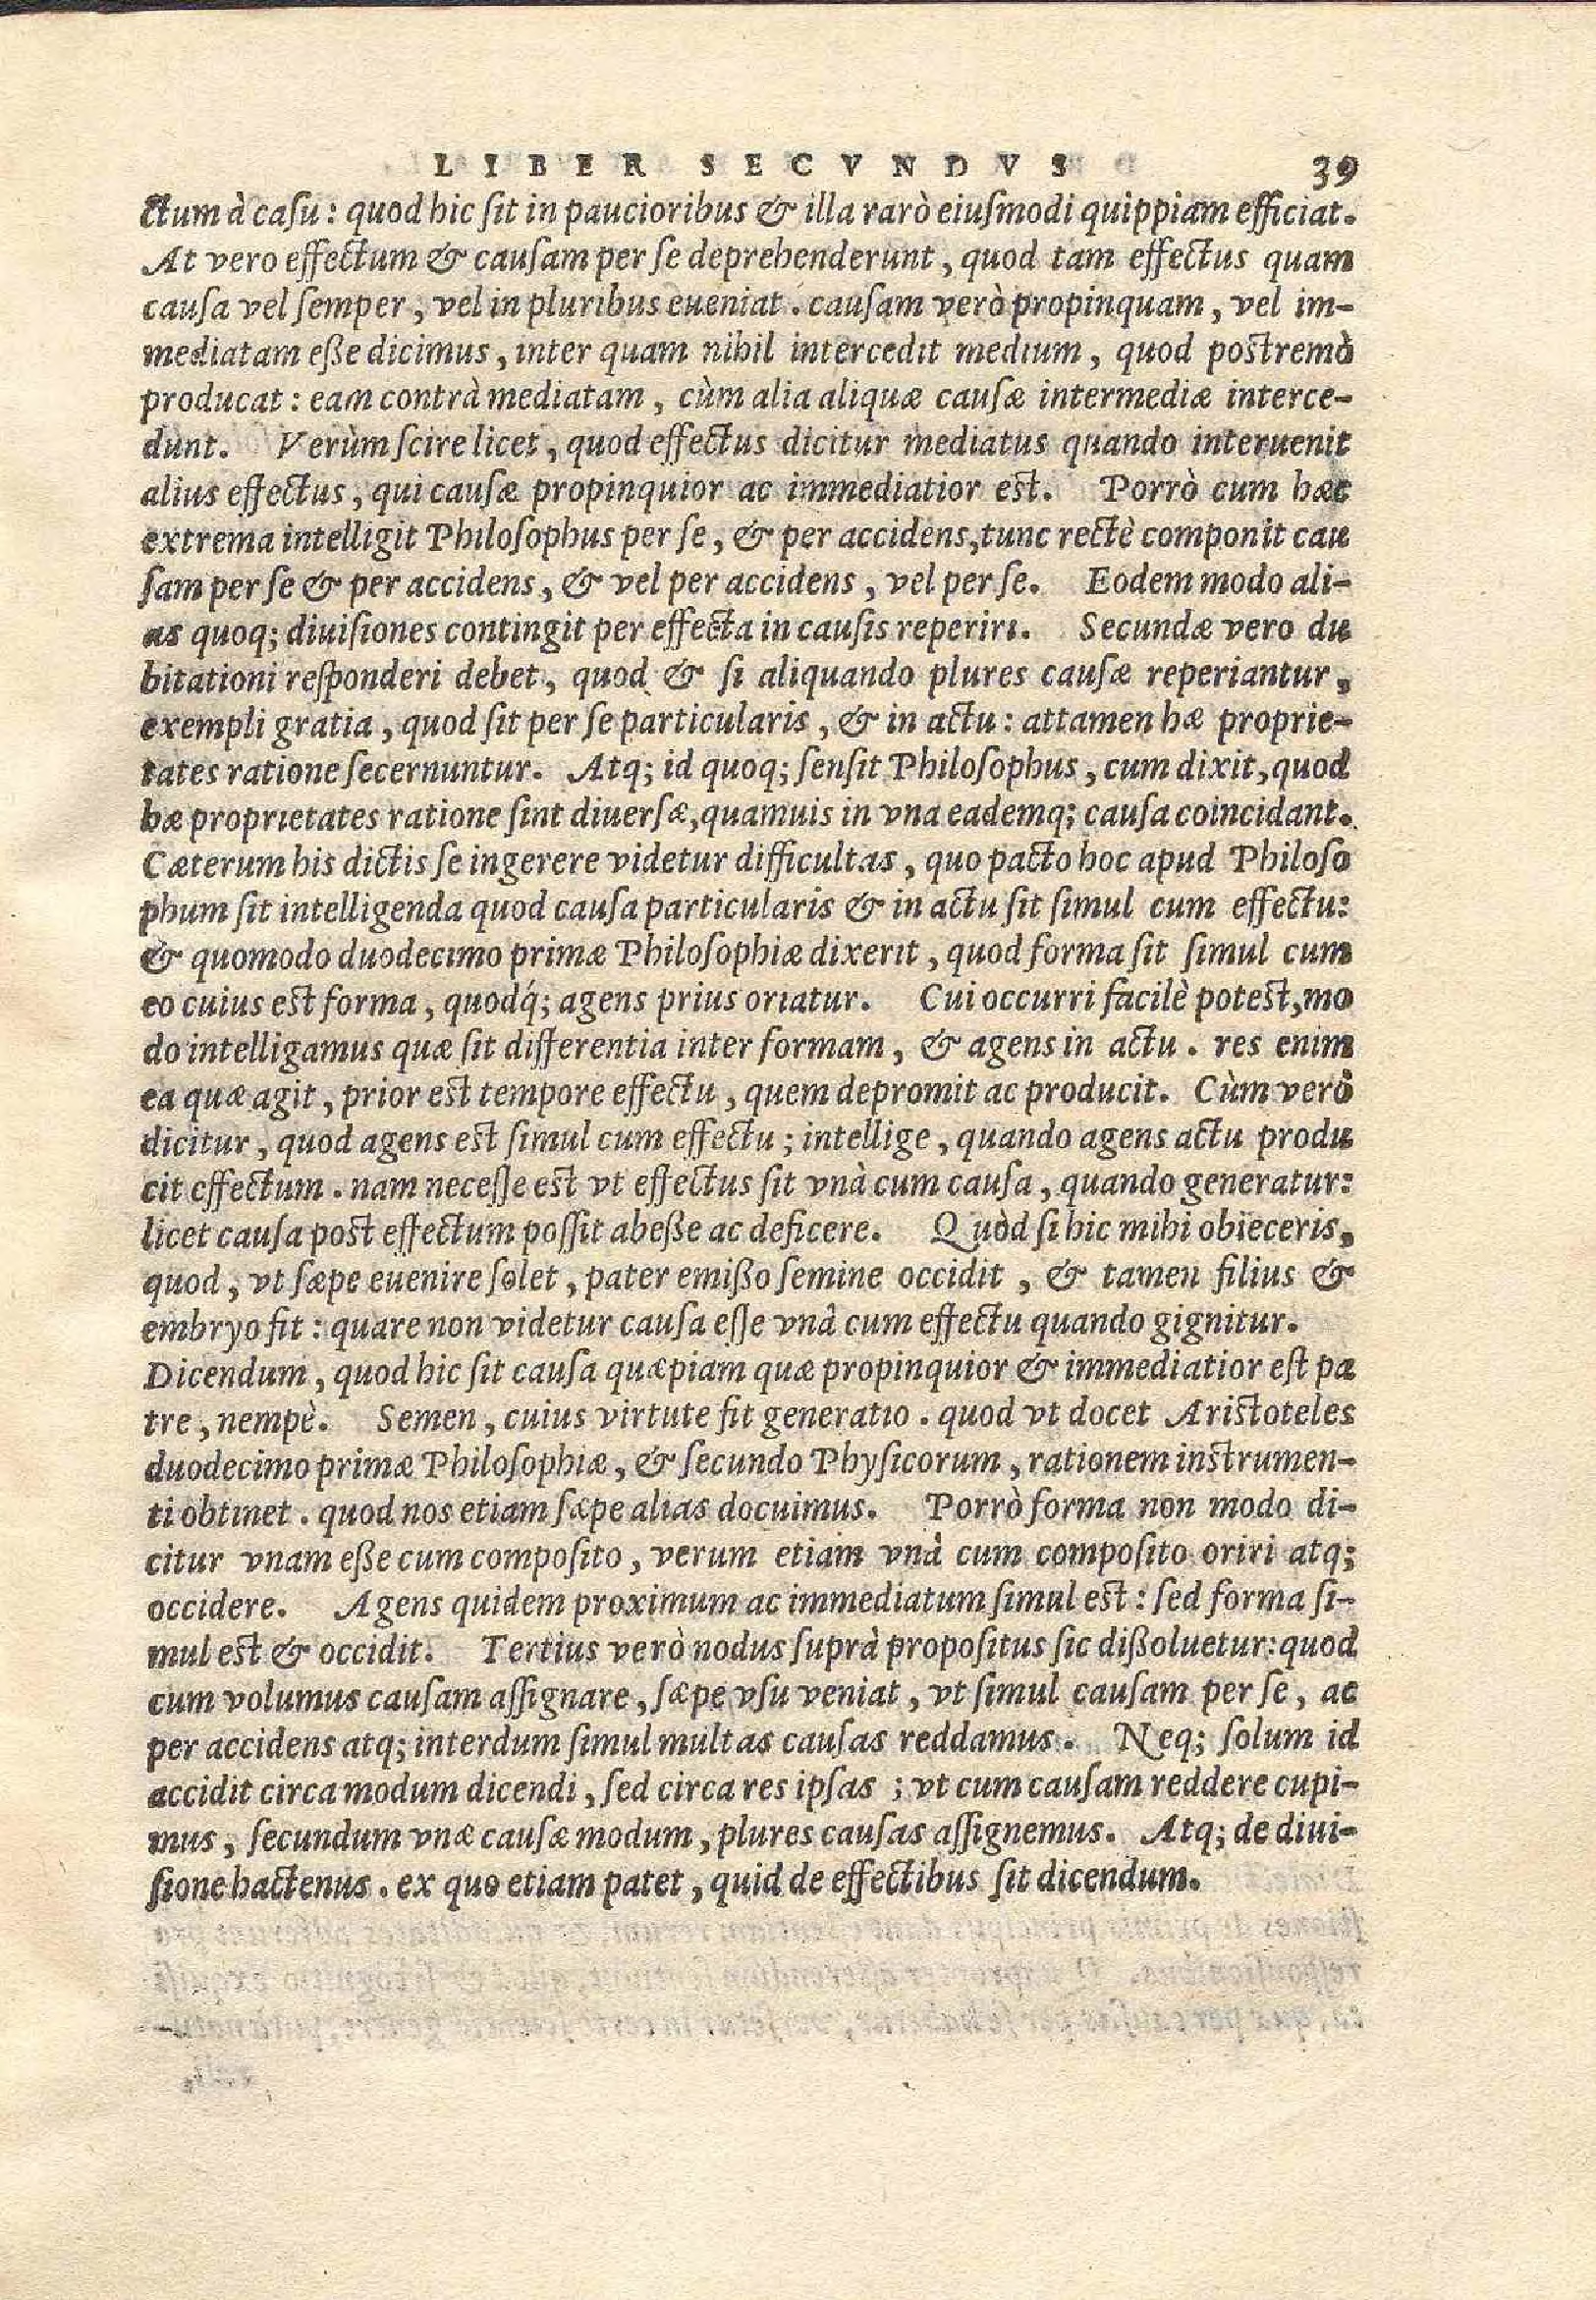 LIBER SECVNDVS 39
ctum à casu: quod hic sit in paucioribus & illa rarò eiusmodi quippiam efficiat.
At vero effectum & causam per se deprehenderunt, quod tam effectus quam
causa vel semper, vel in pluribus eueniat. causam verò propinquam, vel im-
mediatam eße dicimus, inter quam nihil intercedit medium, quod postremò
producat: eam contrà mediatam, cùm alia aliquæ causæ intermediæ interce-
dunt. Verùm scire licet, quod effectus dicitur mediatus quando interuenit
alius effectus, qui causæ propinquior ac immediatior est. Porrò cum hæc
extrema intelligit Philosophus per se, & per accidens, tunc rectè componit cau
sam per se & per accidens, & vel per accidens, vel per se. Eodem modo ali-
as quoq; diuisiones contingit per effecta in causis reperiri. Secundæ vero du
bitationi responderi debet, quod & si aliquando plures causæ reperiantur,
exempli gratia, quod sit per se particularis, & in actu: attamen hæ proprie-
tates ratione secernuntur. Atq; id quoq; sensit Philosophus, cum dixit, quod
hæ proprietates ratione sint diuersæ, quamuis in vna eademq; causa coincidant.
Cæterum his dictis se ingerere videtur difficultas, quo pacto hoc apud Philoso
phum sit intelligenda quod causa particularis & in actu sit simul cum effectu:
& quomodo duodecimo primæ Philosophiæ dixerit, quod forma sit simul cum
eo cuius est forma, quodq́; agens prius oriatur. Cui occurri facilè potest, mo
do intelligamus quæ sit differentia inter formam, & agens in actu. res enim
ea quæ agit, prior est tempore effectu, quem depromit ac producit. Cùm verò
dicitur, quod agens est simul cum effectu; intellige, quando agens actu produ
cit effectum. nam necesse est vt effectus sit vnà cum causa, quando generatur:
licet causa post effectum possit abeße ac deficere. Quòd si hic mihi obieceris,
quod, vt sæpe euenire solet, pater emißo semine occidit, & tamen filius &
embryo fit: quare non videtur causa esse vnâ cum effectu quando gignitur.
Dicendum, quod hic sit causa quæpiam quæ propinquior & immediatior est pa
tre, nempè. Semen, cuius virtute fit generatio. quod vt docet Aristoteles
duodecimo primæ Philosophiæ, & secundo Physicorum, rationem instrumen-
ti obtinet. quod nos etiam sæpe alias docuimus. Porrò forma non modo di-
citur vnam eße cum composito, verum etiam vnâ cum composito oriri atq;
occidere. Agens quidem proximum ac immediatum simul est: sed forma si-
mul est & occidit. Tertius verò nodus suprà propositus sic dißoluetur: quod
cum volumus causam assignare, sæpe vsu veniat, vt simul causam per se, ac
per accidens atq; interdum simul multas causas reddamus. Neq; solum id
accidit circa modum dicendi, sed circa res ipsas; vt cum causam reddere cupi-
mus, secundum vnæ causæ modum, plures causas assignemus. Atq; de diui-
sione hactenus. ex quo etiam patet, quid de effectibus sit dicendum.